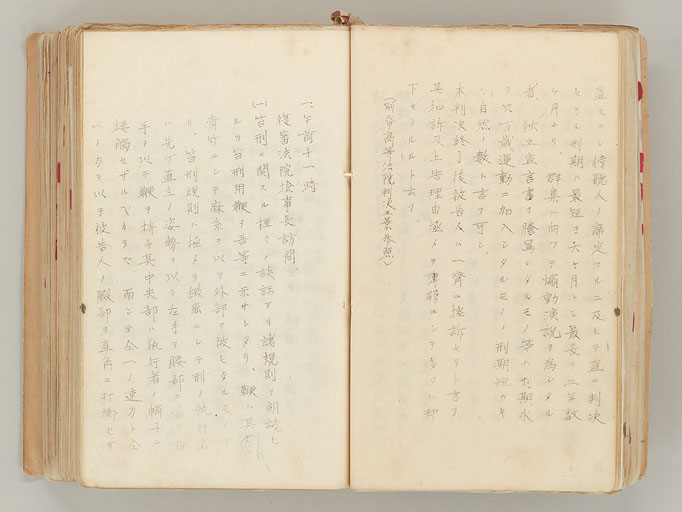 盈セシ傍聴人ノ席定マルニ及ヒテ直ニ判決
セラル刑期ハ最短ヲ六ヶ月トシ最長ハ二年数
ヶ月ナリ群集ニ向ツテ煽動演説ヲ為シタル
者、独立宣言書ヲ謄写シタルモノ等ハ刑期永
ク只万歳運動ニ加入シタルモノノ刑期短カキ
ハ自然ノ数ト言フ可シ
本判決終了後被告人ハ一齊ニ控訴セリト言フ
其控訴及上告理由極メテ薄弱ニシテ多クハ却
下セラルルト云フ
(別冊高等法院判決文参照)
一、午前十一時
復審法院検事長訪問
(一)笞刑ニ関スル種々ノ談話アリ諸規則ヲ朗読セ
ルカ笞刑用鞭ヲ吾等ニ示サレタリ、鞭ハ其
青竹ニシテ麻糸ヲ以テ外部ヲ被ヒタルモノ
リ、笞刑規則ハ極メテ緻密ニシテ刑ノ執行者
ハ先ツ直立ノ姿勢ヲ以テ左手ヲ腰部ニ 右
手ヲ以テ鞭ヲ持チ其中央部ハ執行者ノ帽子ニ
接觸セザルベカラズ、而シテ全一ノ速力ト全
一ノ力ヲ以テ被告人ノ臀部ヲ直角ニ打擲セザ